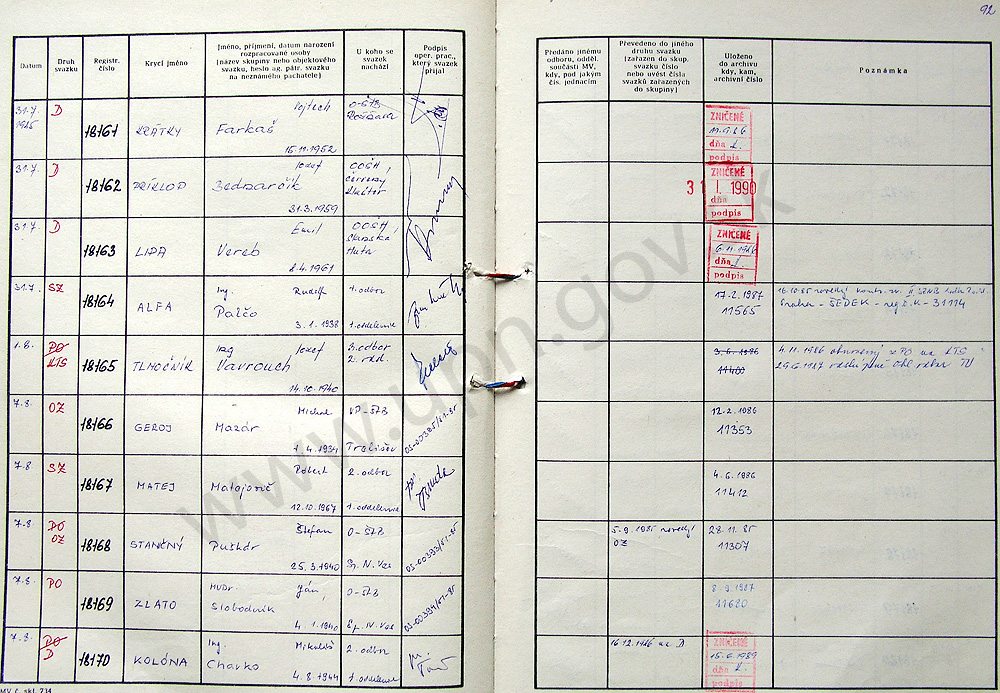 92
Datum
Druh svazku
Registr. číslo
Krycí jméno
Jméno, příjmení, datum narození rozpracované osoby
(název skupiny nebo objektového svazku, heslo ag. pátr. svazku na neznámého pachatele)
U koho se svazek nachází
Podpis oper. prac., který svazek přijal
Předáno jinému odboru, odděl. součásti MV, kdy, pod jakým čís. jednacím
Převedeno do jiného druhu svazku (zařazen do skup. svazku číslo nebo uvést čísla svazků zařazených do skupiny)
Uloženo do archivu kdy, kam, archivní číslo
Poznámka
31.7. 1985 D 18161 KRÁTKY Vojtech Farkaš 15.11.1952 O-ŠtB
ZNIČENÉ
dňa
podpis
31.7. D 18162 PRÍKLOP Jozef Bednarčík 31.3.1959 OOŠH, Červený Kláštor
ZNIČENÉ
31 I. 1990
dňa
podpis
31.7. D 18163 LIPA Emil Vereb 2.4.1961 OOŠH, Huta
ZNIČENÉ
6.11.1986
dňa
podpis
31.7. SZ 18164 ALFA Ing. Rudolf Palčo 3.1.1938 1.odbor 1.oddelenie
17.2.1987
11565
16.10.85 ŠEDEK - 31114
1.8. PO KTS 18165 TLMOČNÍK Ing. Jozef Vavrouch 14.10.1940 3.odbor 2.odd.
3.6.1986
11400
4.11.1986 z PO na KTS
7.8. OZ 18166 GEROJ Michal Mazár 1.4.1934 VP-ŠtB Trebišov 03-00385/01-85
12.2.1986
11353
7.8 SZ 18167 MATEJ Róbert Matejovič 12.10.1967 2.odbor 1.oddelenie
4.6.1986
11412
7.8 PO OZ 18168 STANČNÝ Štefan Puškár 25.3.1940 O-ŠtB Sp.N.Ves 03-00393/01-85
5.9.1985 OZ
28.11.85
11307
7.8. PO 18169 ZLATO MUDr. Ján, Slobodník 4.1.1940 O-ŠtB Sp.N.Ves 03-00394/01-85
8.9.1987
11620
7.8. PO D 18170 KOLÓNA Ing. Mikuláš Charko 4.8.1944 2.odbor 1.oddelenie
16.12.1986 na D
ZNIČENÉ
15.6.1989
dňa
podpis
MV č. skl. 734
www.upn.gov.sk